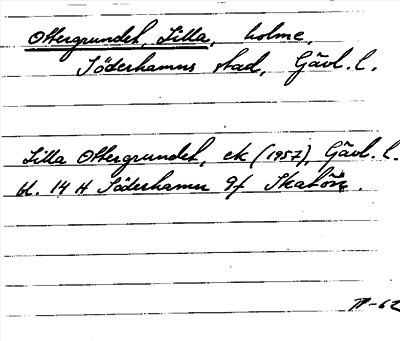 Ottergrundet, Lilla, holme.
Söderhamns stad, Gävl. l.
Lilla Ottergrundet, ek (1957), Gävl. l.
bl. 14 H Söderhamn 9f Skatön.
-62